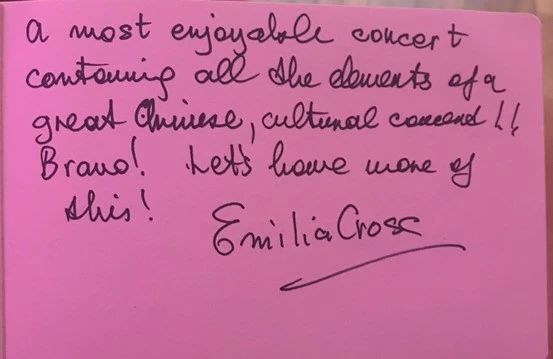 a most enjoyable concert
containing all the elements of a
great Chinese, cultural concend !!
Bravo! Let's have more of
this!
Emilia Cross